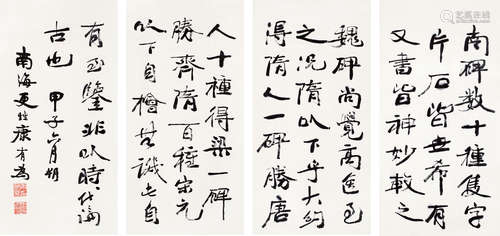 南碑数十種隻字
片石皆世希有
又書皆神妙較之
魏碑尚覺高逸過
之况隋以下乎大約
得隋人一碑勝唐
人十種得梁一碑
勝齊隋百種宋元
以下自檜无譏也自
有至鑒非以時代論
古也 甲子六月朔
南海更生康有為